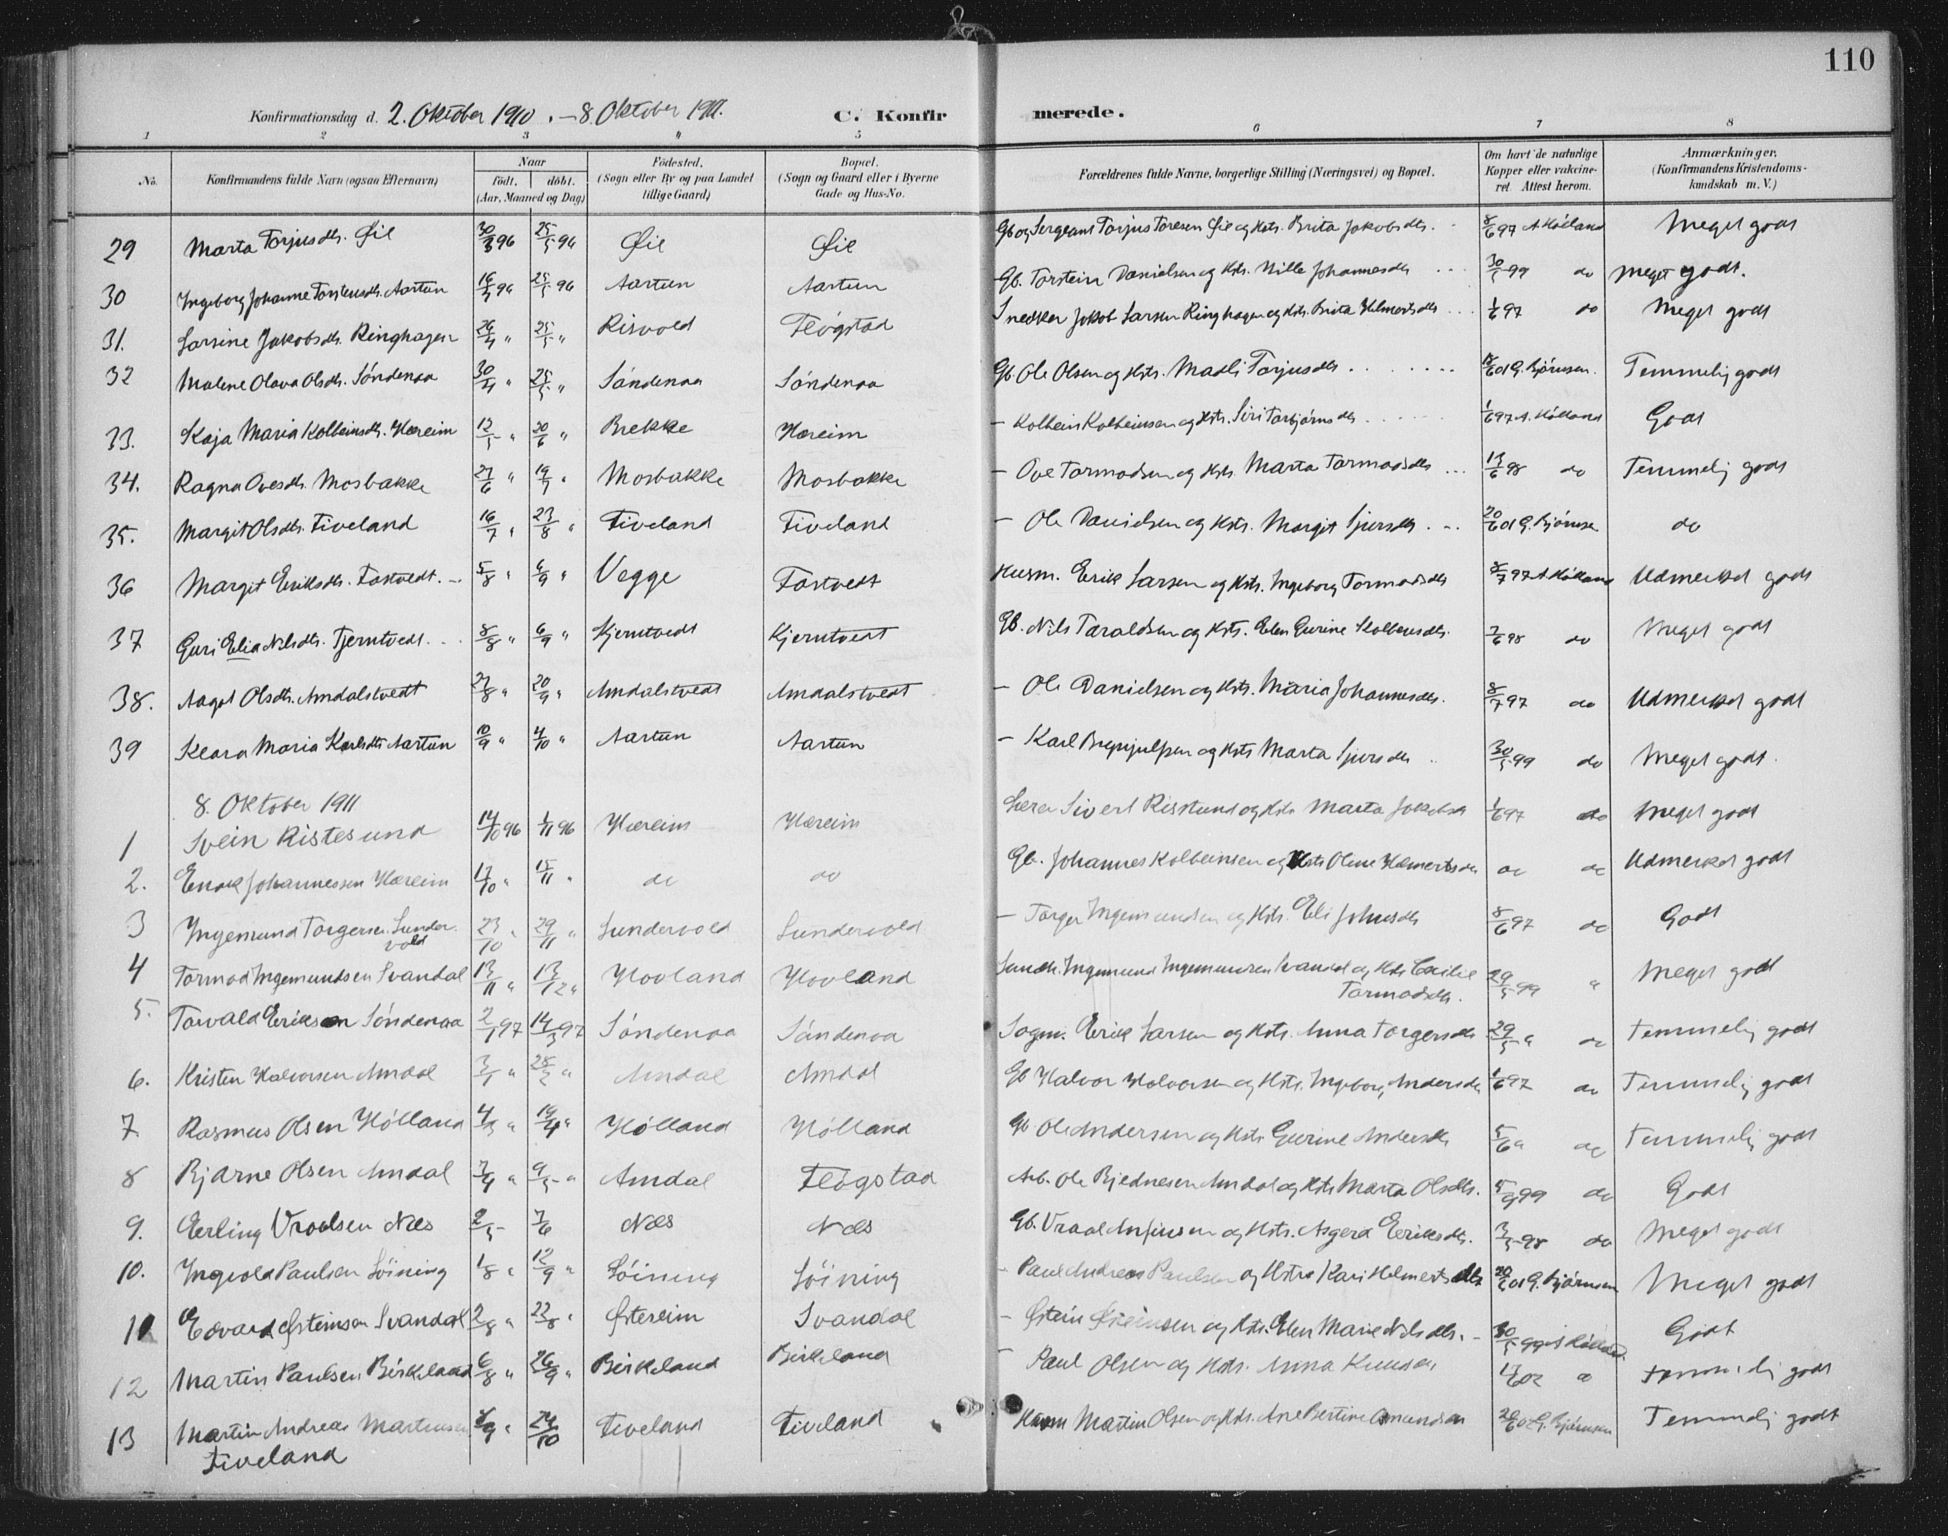 110
Konfirmationsdag d. 2. Oktober 1910. - 8. Oktober 1911.
C. Konfirmerede.
1 2 3 4 5 6 7 8
No. Konfirmandens fulde Navn (ogsaa Efternavn) Naar født. døbt. (Aar, Maaned og Dag) Fødested. (Sogn eller By og paa Landet tillige Gaard) Bopæl. (Sogn og Gaard eller i Byerne Gade og Hus-No. Forældrenes fulde Navne, borgerlige Stilling (Næringsvei) og Bopæl. Om havt de naturlige Kopper eller vakcineret. Attest herom. Anmærkninger. (Konfirmandens Kristendomskundskab m. V.)
29 Marta Torjusdtr. Øie 30/3 96 25/5 96 Øie Øie Gb og Sergeant Torjus Toresen Øie og Hstr. Brita Jakobsdtr. 8/6 97 A. Hølland Meget godt
30 Ingeborg Johanne Torsteinsdtr. Aartun 96 25/5 96 Aartun Aartun Gb. Torstein Danielsen og Hstr. Nille Johannesdtr 30/5 99 do Meget godt.
31. Larsine Jakobsdtr. Ringhagen " 25/5 " Risvold Fløgstad Snedker Jakob Larsen Ringhagen og Hstr. Brita Helmertsdtr 1/6 97 do Meget godt
32 Malene Olava Olsdtr. Söndenaa 30/4 " 25/5 " Söndenaa Söndenaa Gb. Ole Olsen og Hstr. Madli Torjusdtr G. Bjørnsen. Temmelig godt
33. Kaja Maria Kolbeinsdtr. Hæreim 12/5 " 20/6 " Brekke Hæreim - Kolbein Kolbeinsen og Hstr. Siri Torbjörnsdtr 1/6 97 A. Hølland Godt
34. Ragna Ovesdtr. Mosbakke 27/6 " 19/7 " Mosbakke Mosbakke - Ove Tormodsen og Hstr. Marta Tormodsdtr 13/6 98 do Temmelig godt
35. Margit Olsdtr. Fiveland 16/7 " 23/8 " Fiveland Fiveland - Ole Danielsen og Hstr. Margit Sjursdtr 20/6 01 G. Bjørnsen do
36 Margit Eriksdtr. Fostvedt. 5/8 " 6/9 " Vegge Fostvedt Husm. Erik Larsen og Hstr. Ingeborg Tormodsdtr 8/7 97 A. Hølland Udmerket godt
37 Guri Elia Nilsdtr. Tjerntvedt. 8/8 " 6/9 " Kjerntvedt Kjerntvedt Gb. Nils Taraldsen og Hstr. Elen Gurine Kolbeinsdtr. 7/6 98 do Meget godt
38. Aagot Olsdtr. Amdalstvedt 27/8 " 20/9 " Amdalstvedt Amdalstvedt - Ole Danielsen og Hstr. Maria Johannesdtr. 8/7 97 do Udmerket godt
39 Klara Maria Karlsdtr Aartun 10/9 " 4/10 " Aartun Aartun - Karl og Hstr Marta Sjursdtr 30/5 99 do Meget godt.
8. Oktober 1911
1 Svein Ristesund 14/10 96 1/11 96 Hæreim Hæreim Lærer Sivert Ristesund og Hstr Marta 1/6 97 do Meget godt
2. Enok Johannessen Hæreim 17/10 " 15/11 " do do Gb. Johannes Kolbeinsen og Hstr Oline Helmertsdtr do do Udmerket godt
3 Ingemund Torgersen Sundervold 23/10 " 29/11 " Sundervold Sundervold - Torger Ingemundsen og Hstr. Eli Johnsdtr 8/6 97 do Godt
4 Tormod Ingemundsen Svandal 13/11 " 13/12 " Hovland Hovland Ingemund Ingemundsen Svandal og Hstr Cecilie Tormodsdtr. 29/5 99 " Meget godt
5. Torvald Eriksen Söndenaa 2/1 97 14/3 97 Söndenaa Söndenaa Erik Larsen og Hstr. Anna Torgersdtr 29/5 " do Temmelig godt
6. Kristen Halvorsen Amdal 3/1 " 28/2 " Amdal Amdal Gb Halvor Halvorsen og Hstr. Ingeborg Andersdtr 1/6 97 do Temmelig godt
7 Rasmus Olsen Hölland 4/3 " 19/4 " Hölland Hölland Gb Ole Andersen og Hstr Gurine Andersdtr 5/6 " do Temmelig godt
8 Bjarne Olsen Amdal 7/4 " 9/5 " Amdal Fløgstad Arb. Ole Bjednesen Amdal og Hstr Marta Olsdtr. 5/9 99 do Godt
9. Erling Vraalsen Næs 2/5 7/6 Næs Næs Gb. Vraal og Hstr. Asgerd Eriksdtr. 3/5 98 do Meget godt
10. Ingvald Paulsen Löining 1/8 " 12/9 " Löining Löining - Paul Andreas Paulsen og Hstr Kari Helmertsdtr 20/6 01 G. Bjørnsen Meget godt
11 Edvard Østeinsen Svandal 2/8 " 22/8 " Østereim Svandal - Østein Østeinsen og Hstr. Elen Marie Nilsdtr. 30/5 99 A. Hølland Godt
12 Martin Paulsen Birkeland 6/8 " 26/9 " Birkeland Birkeland - Paul Olsen og Hstr. Anna 02 " Temmelig godt
13 Martin Andreas Martinsen Fiveland 8/9 " 24/10 Fiveland Fiveland Husm Martin Olsen og Hstr. Ane Bertine G. Bjørnsen Temmelig godt